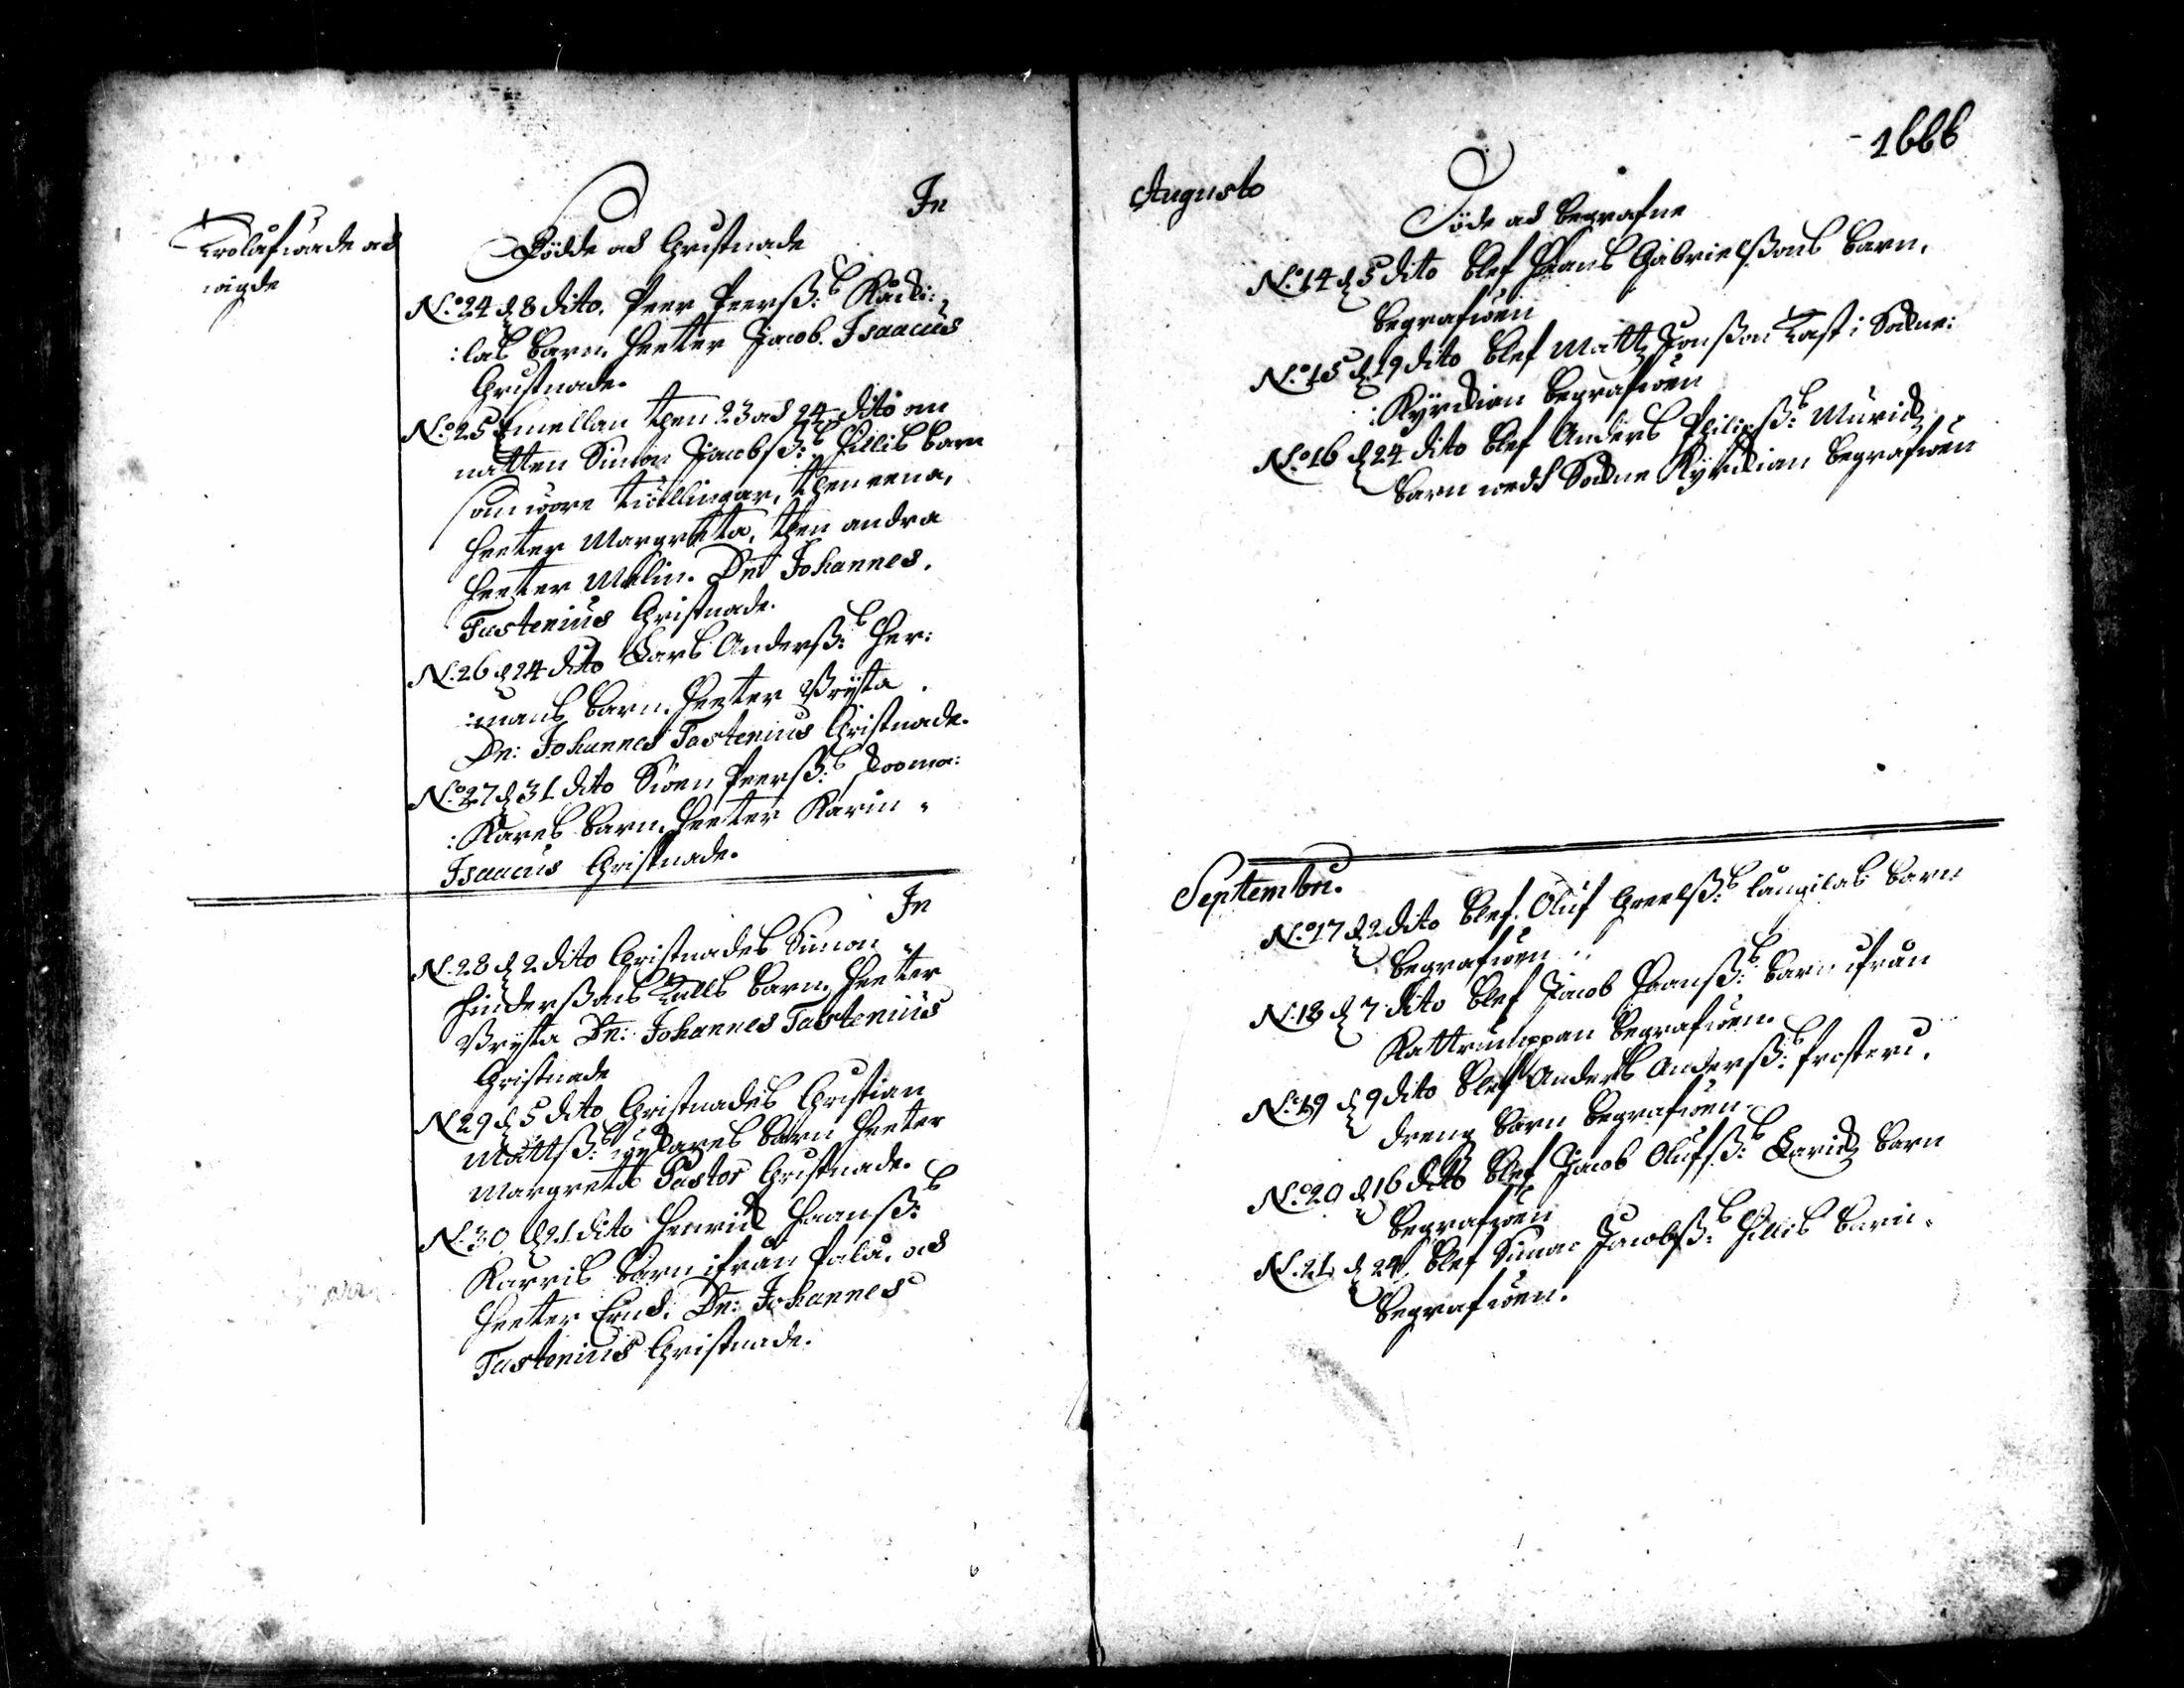 In
Trolåfwade och
wigde
Födde och Christnade
No 24 d 8 dito. Peer Peerß:s Kåcki:
:las barn, heeter Jacob. Isaacus
Christnade.
No 25 Emellan then 23 och 24 dito om
natten Simon Jacobß:s Hillis barn
som wore twillingar, then eena,
heeter Margreta, then andra
heeter Malin. Dn Johannes.
Tastenius Christnade.
N. 26 d 24 dito Lars Anderß:s Her:
:mans barn. heeter Bryta
Dn: Johannes Tastenius Christnade.
No 27 d 31 dito Swen Peerß:s Skooma:
:kares barn. heeter Karin
Isaacus Christnade.
In
N. 28 d 2 dito Christnades Simon
Hinderßons Tulls barn, heeter
Bryta Dn: Johannes Tastenius
Christnade
N 29 d 5 dito Christnades Christian
Mattß:s barn heeter
Margreta Pastor Christnade.
N. 30 d 21 dito Henrick Haanß:s
Karris barn ifrån Palå, och
heeter Erich. Dn: Johannes
Tastenius Christnade.
1666
Augusto
Döde och begrafne
No 14 d 5 dito blef Haans Gabrielßons barn,
begrafwen
No 15 d 19 dito blef Matts Jonßon Kast i Sockne:
:Kyrckian begrafwen
No 16 d 24 dito blef Anders Philipß:s Murick
barn wedh Sockne Kyrckian begrafwen
Septembri.
No 17 d 2 dito blef Oluf Greelß:s Laugilas barn
begrafwen
N. 18 d 7 dito blef Jacob Haanß:s barn ifrån
Kattrumppan begrafwen.
No 19 d 9 dito blef Anders Anderß:s Prosteri.
dreng barn begrafwen.
No 20 d 16 dito blef Jacob Olufß:s Larick barn
begrafwen
N. 21 d 24. blef Simon Jacobß:s Hillis barn.
begrafwen.